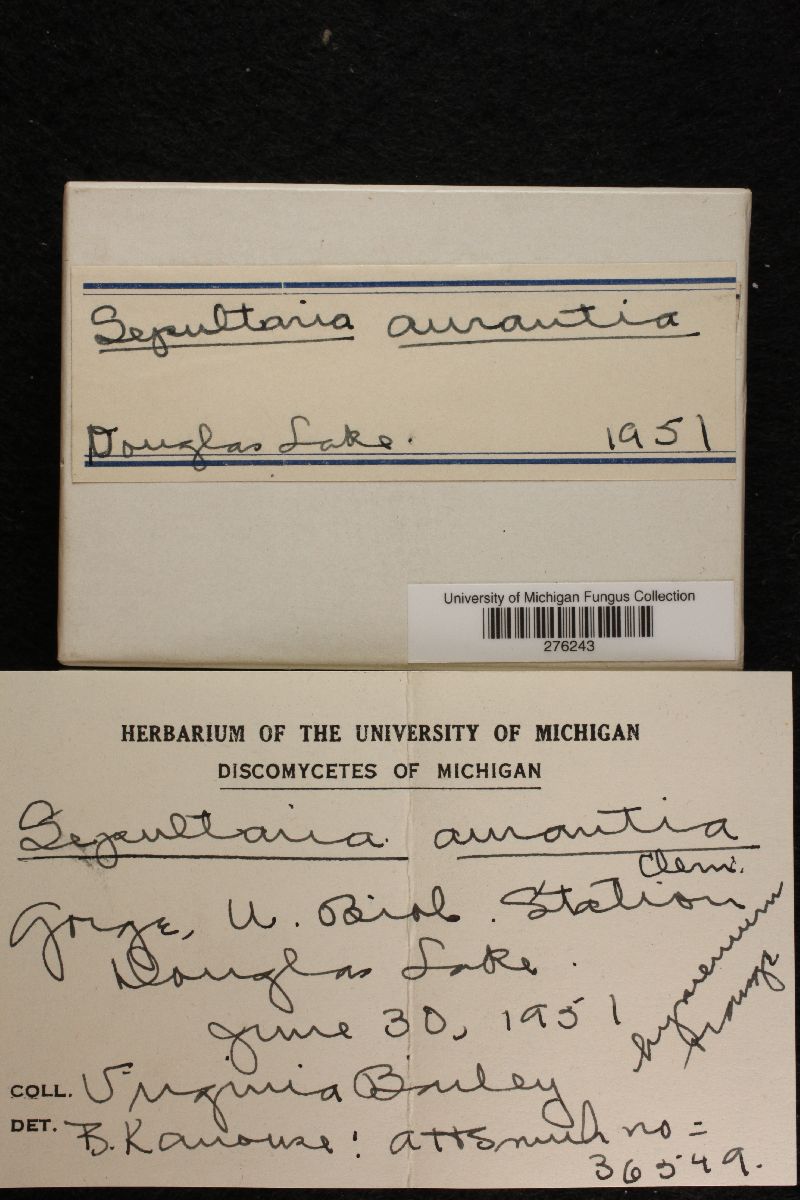 Sepultaria aurantia
Douglas Lake. 1951
University of Michigan Fungus Collection
276243
HERBARIUM OF THE UNIVERSITY OF MICHIGAN
DISCOMYCETES OF MICHIGAN
Sepultaria aurantia
Clem.
Gorge, U. Biol. Station
Douglas Lake.
June 30, 1951
hymenium
orange
COLL. Virginia Bailey
DET. B. Kanouse: AHSmith no =
36549.